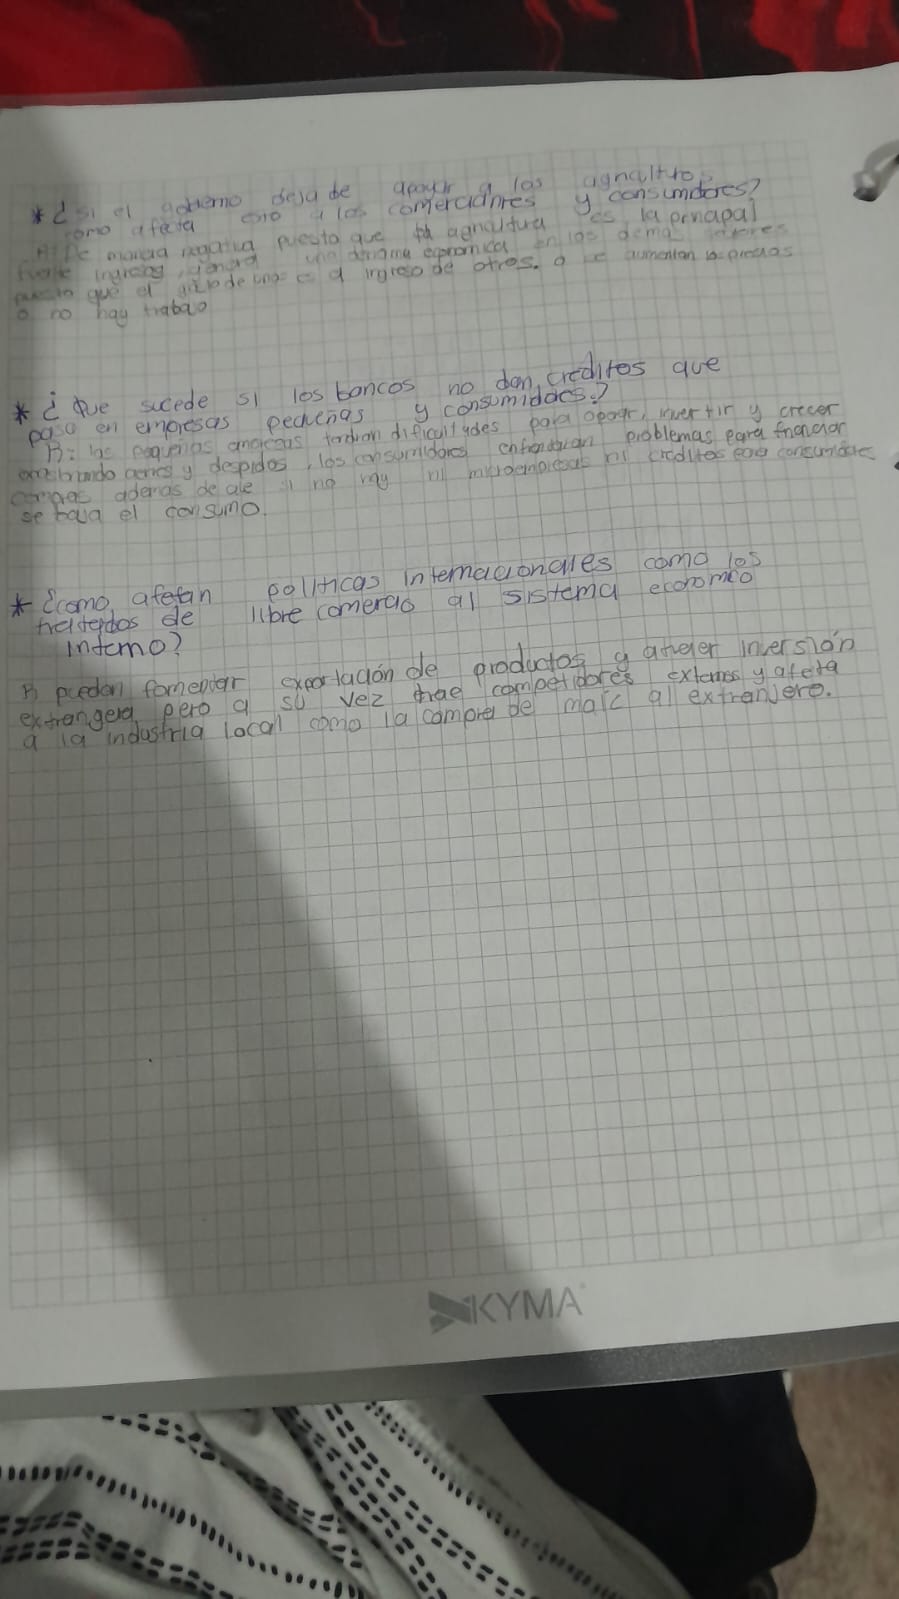 * ¿ si el gobierno deja de apoyar a los agricultro,
como afecta eso a los comerciantes y consumidores?
R: De manera negativa puesto que la agricultura es la principal
fuente ingreso, genera una derrama economica en los demas sectores
puesto que el gasto de unos es el ingreso de otros. o se aumentan los precios
o no hay trabajo
* ¿ Que sucede si los bancos no dan creditos que
paso en empresas pequeñas y consumidores?
R: las pequeñas empresas tendrian dificultades para operar, invertir y crecer
cierres y despidos, los consumidores enfrentarian problemas para financiar
compras ademas de que si no hay ni microempresas ni creditos para consumidores
se baja el consumo.
* ¿como afetan politicas internacionales como los
de libre comercio al sistema economico
interno?
R pueden fomentar exportación de productos y atraer inversión
extrangera, pero a su vez trae competidores externos y afecta
a la industria local como la compra de maíz al extranjero.
KYMA